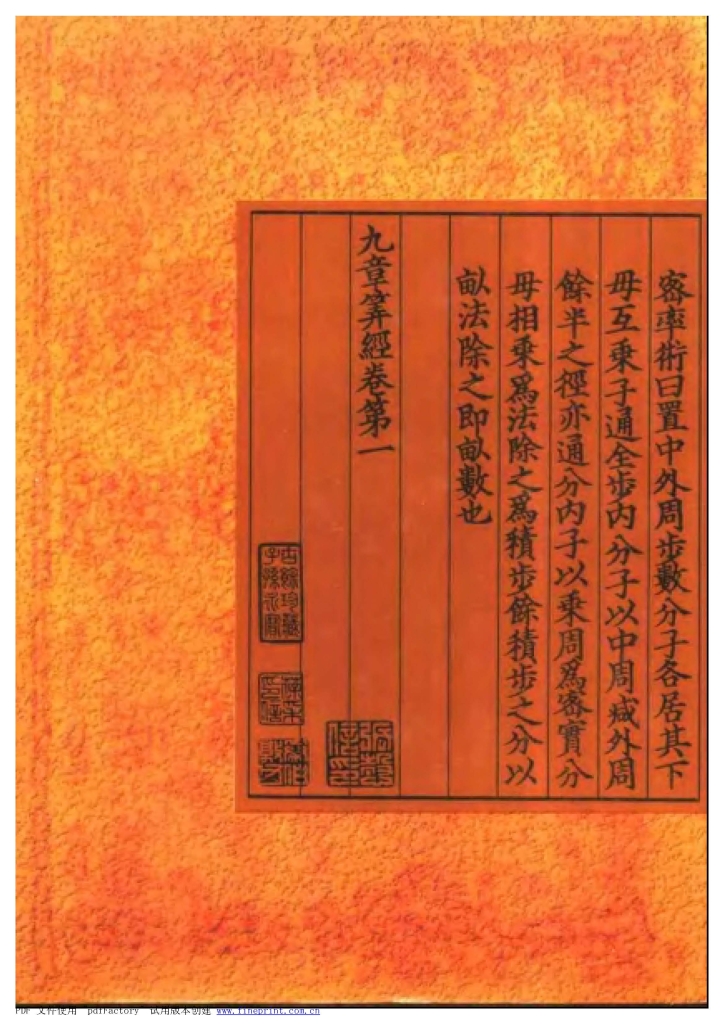 密率術曰置中外周步數分子各居其下
母互乘子通全步內分子以中周減外周
餘半之徑亦通分內子以乘周爲密實分
母相乘爲法除之爲積步餘積步之分以
畝法除之即畝數也
九章筭經卷第一
PDF 文件使用 "pdfFactory" 试用版本创建 www.fineprint.com.cn